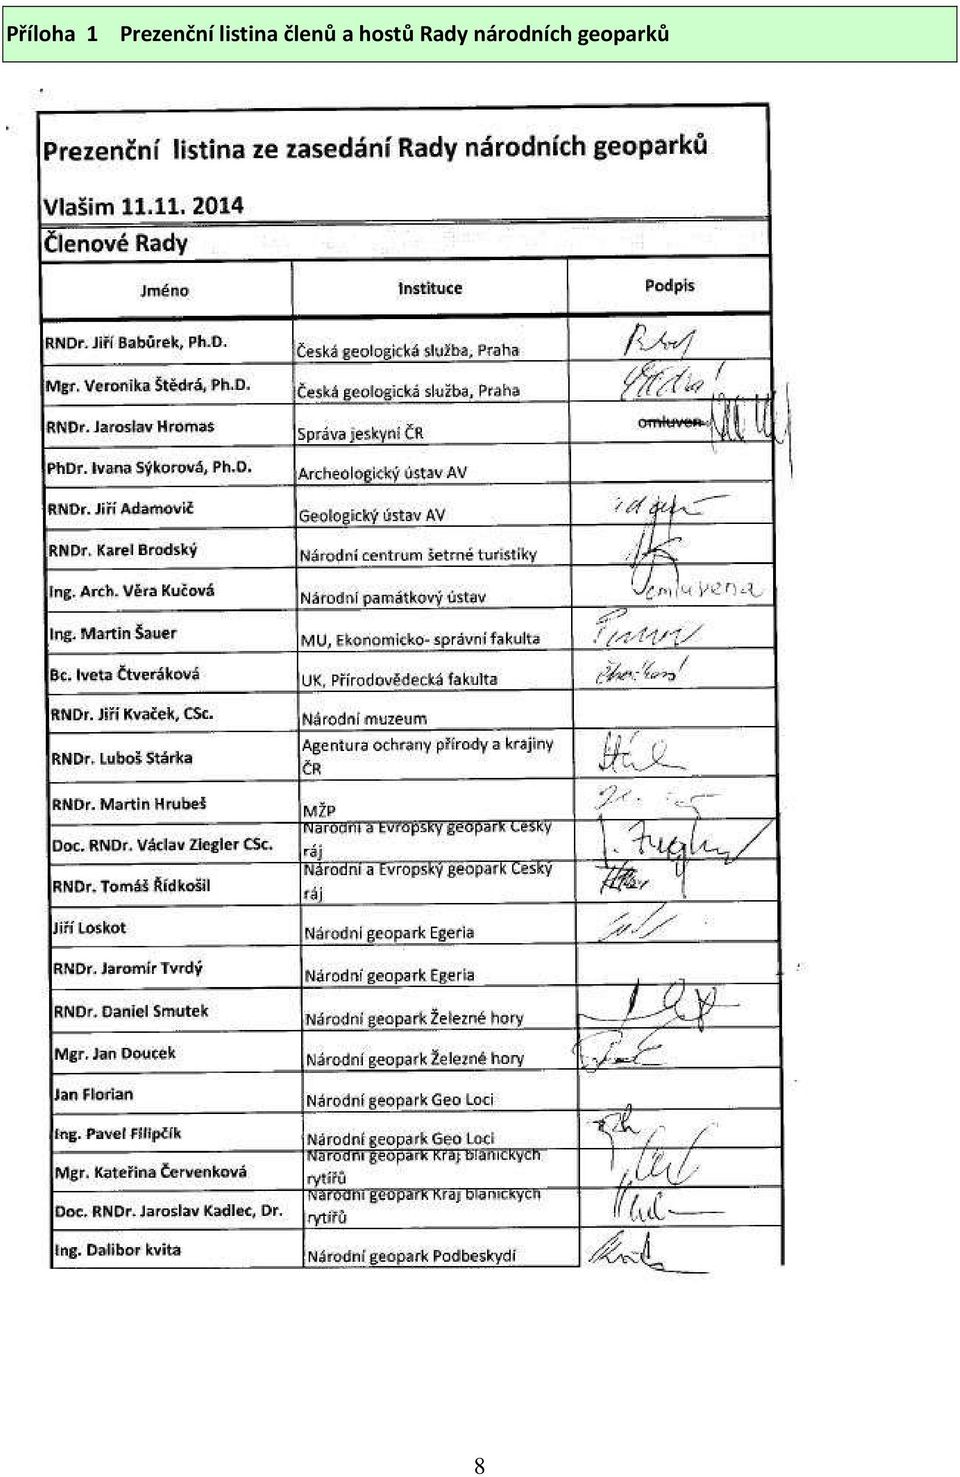 Příloha 1 Prezenční listina členů a hostů Rady národních geoparků
Prezenční listina ze zasedání Rady národních geoparků
Vlašim 11.11. 2014
Členové Rady
Jméno Instituce Podpis
RNDr. Jiří Babůrek, Ph.D. Česká geologická služba, Praha
Mgr. Veronika Štědrá, Ph.D. Česká geologická služba, Praha
RNDr. Jaroslav Hromas Správa jeskyní ČR omluven
PhDr. Ivana Sýkorová, Ph.D. Archeologický ústav AV
RNDr. Jiří Adamovič Geologický ústav AV
RNDr. Karel Brodský Národní centrum šetrné turistiky
Ing. Arch. Věra Kučová Národní památkový ústav omluvena
Ing. Martin Šauer MU, Ekonomicko- správní fakulta
Bc. Iveta Čtveráková UK, Přírodovědecká fakulta
RNDr. Jiří Kvaček, CSc. Národní muzeum
RNDr. Luboš Stárka Agentura ochrany přírody a krajiny
ČR
RNDr. Martin Hrubeš MŽP
Doc. RNDr. Václav Ziegler CSc. Národní a Evropský geopark Český
ráj
RNDr. Tomáš Řídkošil Národní a Evropský geopark Český
ráj
Jiří Loskot Národní geopark Egeria
RNDr. Jaromír Tvrdý Národní geopark Egeria
RNDr. Daniel Smutek Národní geopark Železné hory
Mgr. Jan Doucek Národní geopark Železné hory
Jan Florian Národní geopark Geo Loci
Ing. Pavel Filipčík Národní geopark Geo Loci
Mgr. Kateřina Červenková Národní geopark Kraj blanických
rytířů
Doc. RNDr. Jaroslav Kadlec, Dr. Národní geopark Kraj blanických
rytířů
Ing. Dalibor kvita Národní geopark Podbeskydí
8